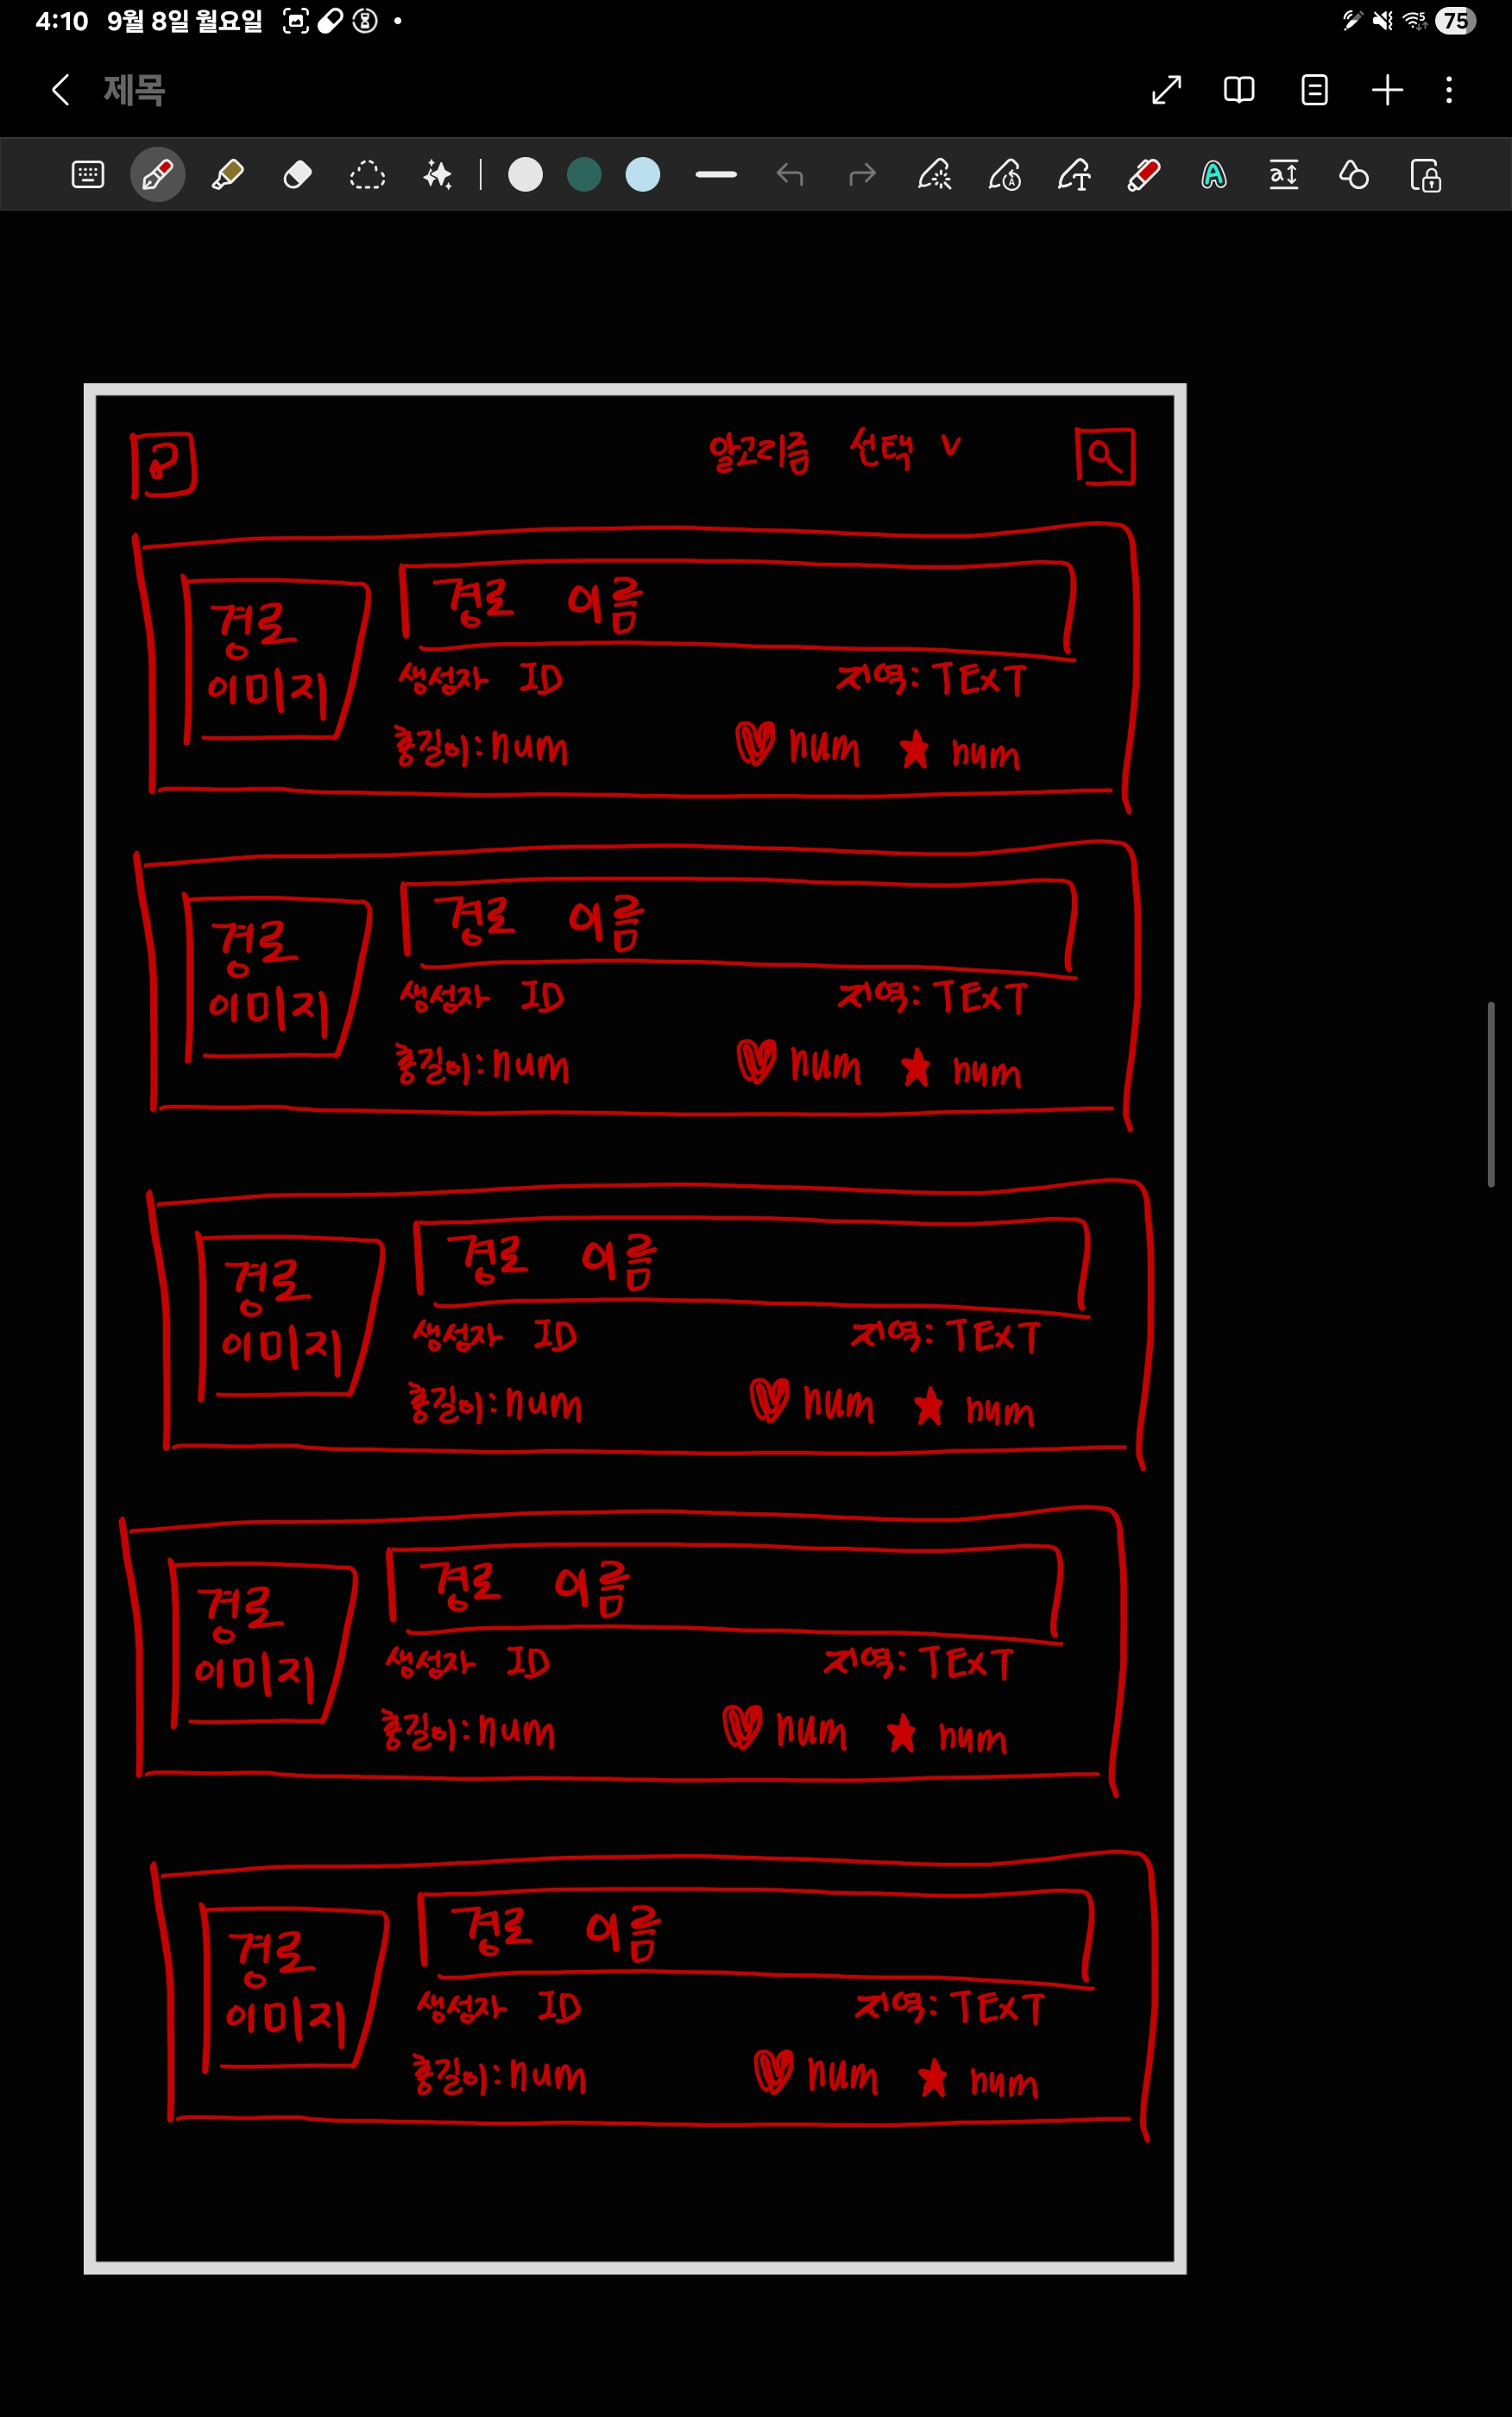 4:10 9월 8일 월요일 75
제목
알고리즘 선택 v
경로 이름
경로
이미지
생성자 ID 지역: TExT
총길이: num ♥ num ★ num
경로 이름
경로
이미지
생성자 ID 지역: TExT
총길이: num ♥ num ★ num
경로 이름
경로
이미지
생성자 ID 지역: TExT
총길이: num ♥ num ★ num
경로 이름
경로
이미지
생성자 ID 지역: TExT
총길이: num ♥ num ★ num
경로 이름
경로
이미지
생성자 ID 지역: TExT
총길이: num ♥ num ★ num